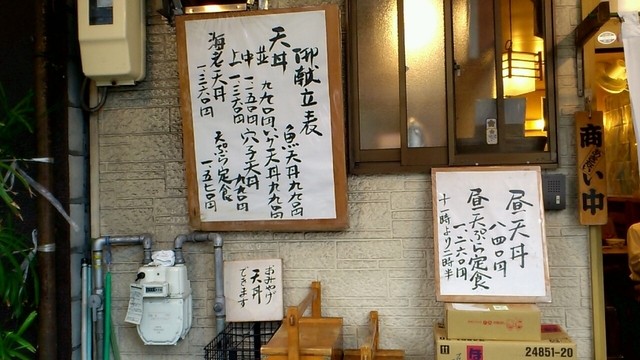 御献立表
天丼
並 九九〇円
中 一一五〇円
上 一三六〇円
海老天丼
一、三六〇円
魚天丼 九九〇円
いか天丼 九九〇円
穴子天丼
九九〇円
天ぷら定食
一五七〇円
おみやげ
天丼
できます
昼天丼
八四〇円
昼天ぷら定食
一、二六〇円
十一時より二時半
商い中
11
24851-20